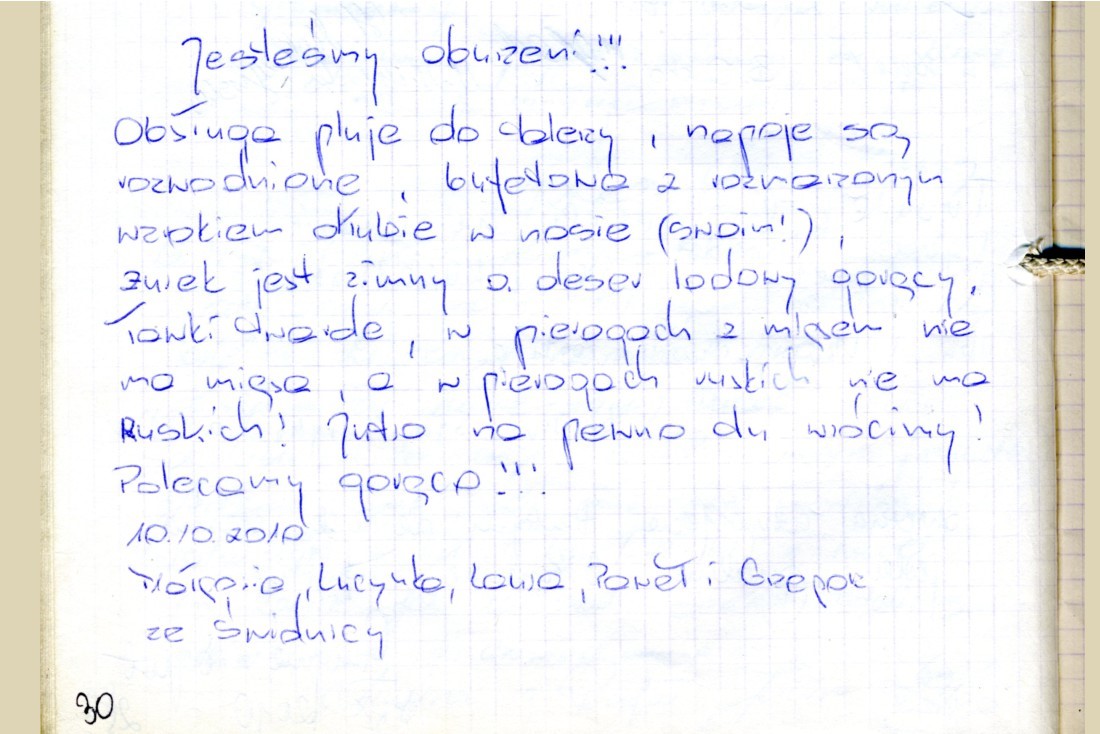 Jesteśmy oburzeni!!!
Obsługa pluje do talerzy, napoje są
rozwodnione, bufetowa z rozmarzonym
wzrokiem dłubie w nosie (swoim!),
żurek jest zimny a deser lodowy gorący,
Ławki twarde, w pierogach z mięsem nie
ma mięsa, a w pierogach ruskich nie ma
Ruskich! Jutro na pewno tu wrócimy!
Polecamy gorąco!!!
10.10.2010
Lucynka, Laura, Paweł i Grzegorz
ze Świdnicy
30